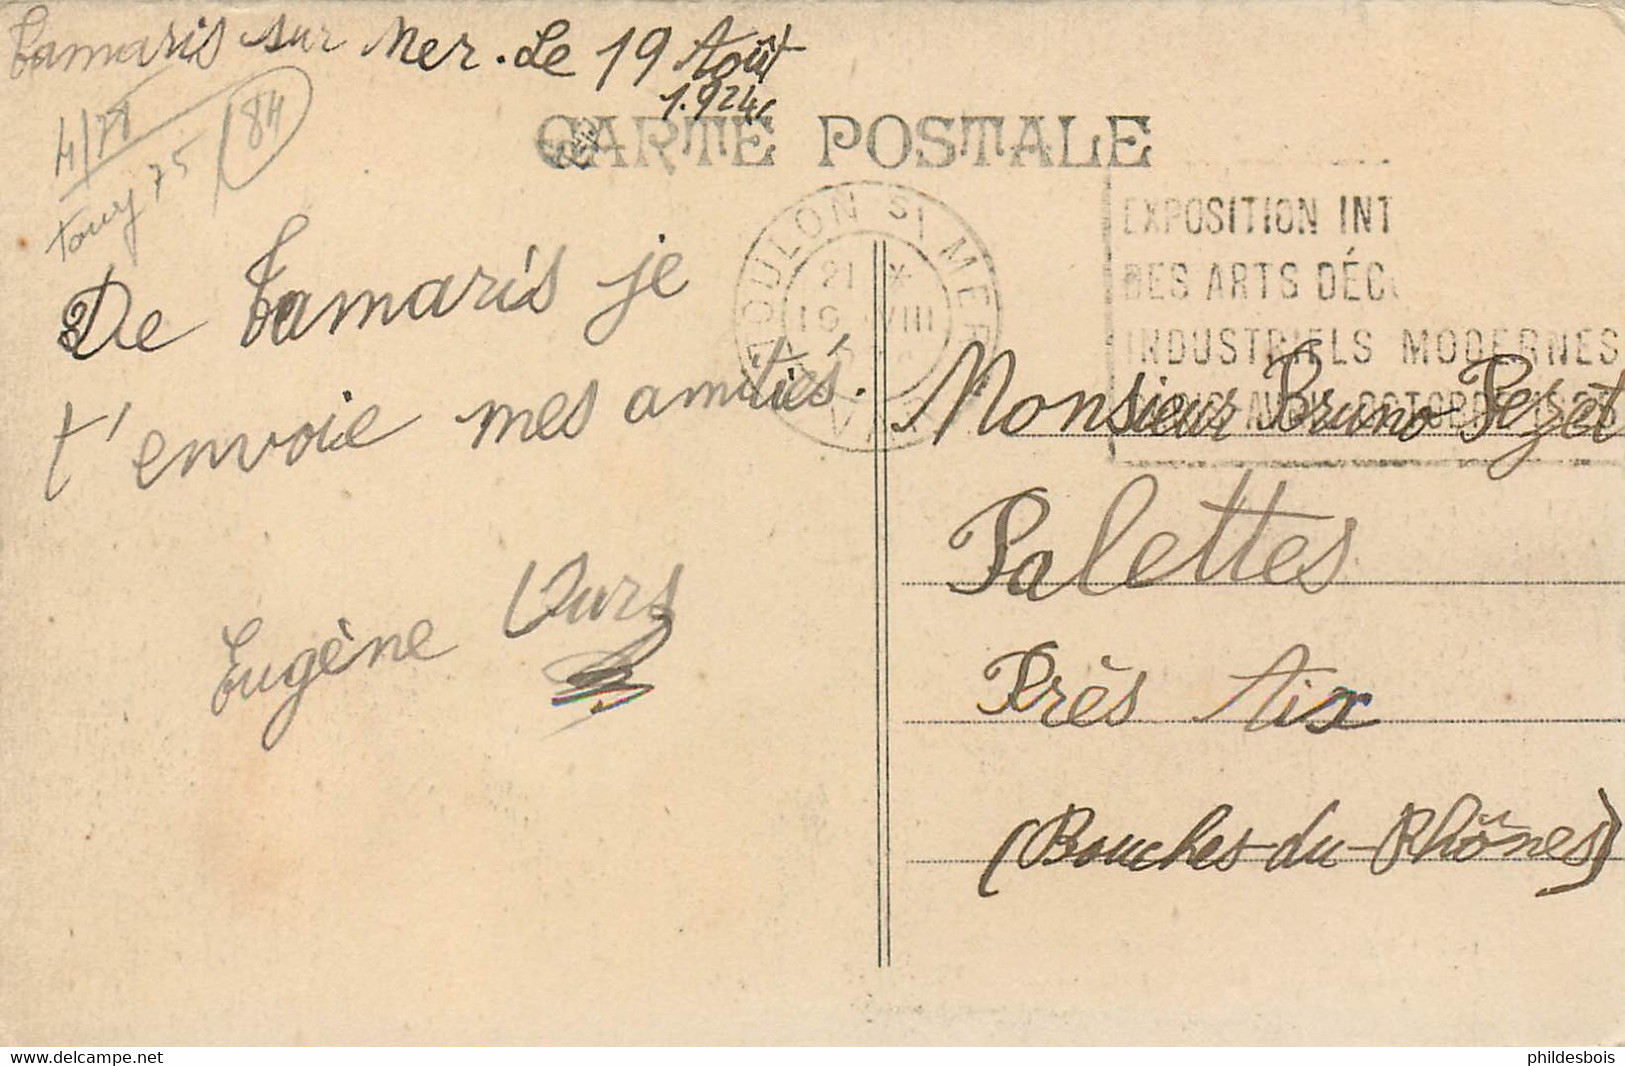 Tamaris sur Mer. Le 19 Août
1.924
4/78
84
75
CARTE POSTALE
TOULON S MER
21 *
19 VIII
VAR
EXPOSITION INT
DES ARTS DÉC
INDUSTRIELS MODERNES
De Tamaris je
t'envoie mes amitiés.
Eugène
Monsieur Bruno Pezet
Palettes
Près Aix
(Bouches-du-Rhônes)
www.delcampe.net
phildesbois